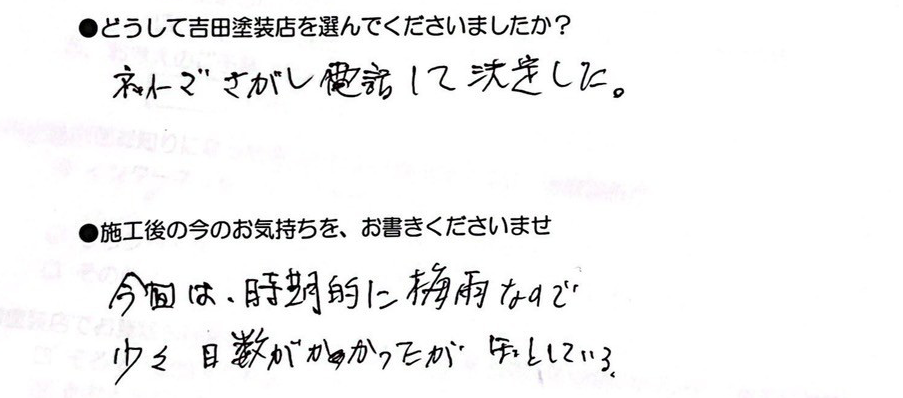 ●どうして吉田塗装店を選んでくださいましたか？
ネットでさがし電話して決定した。
●施工後の今のお気持ちを、お書きくださいませ
今回は、時期的に梅雨なので
少々日数がかかったが としている。